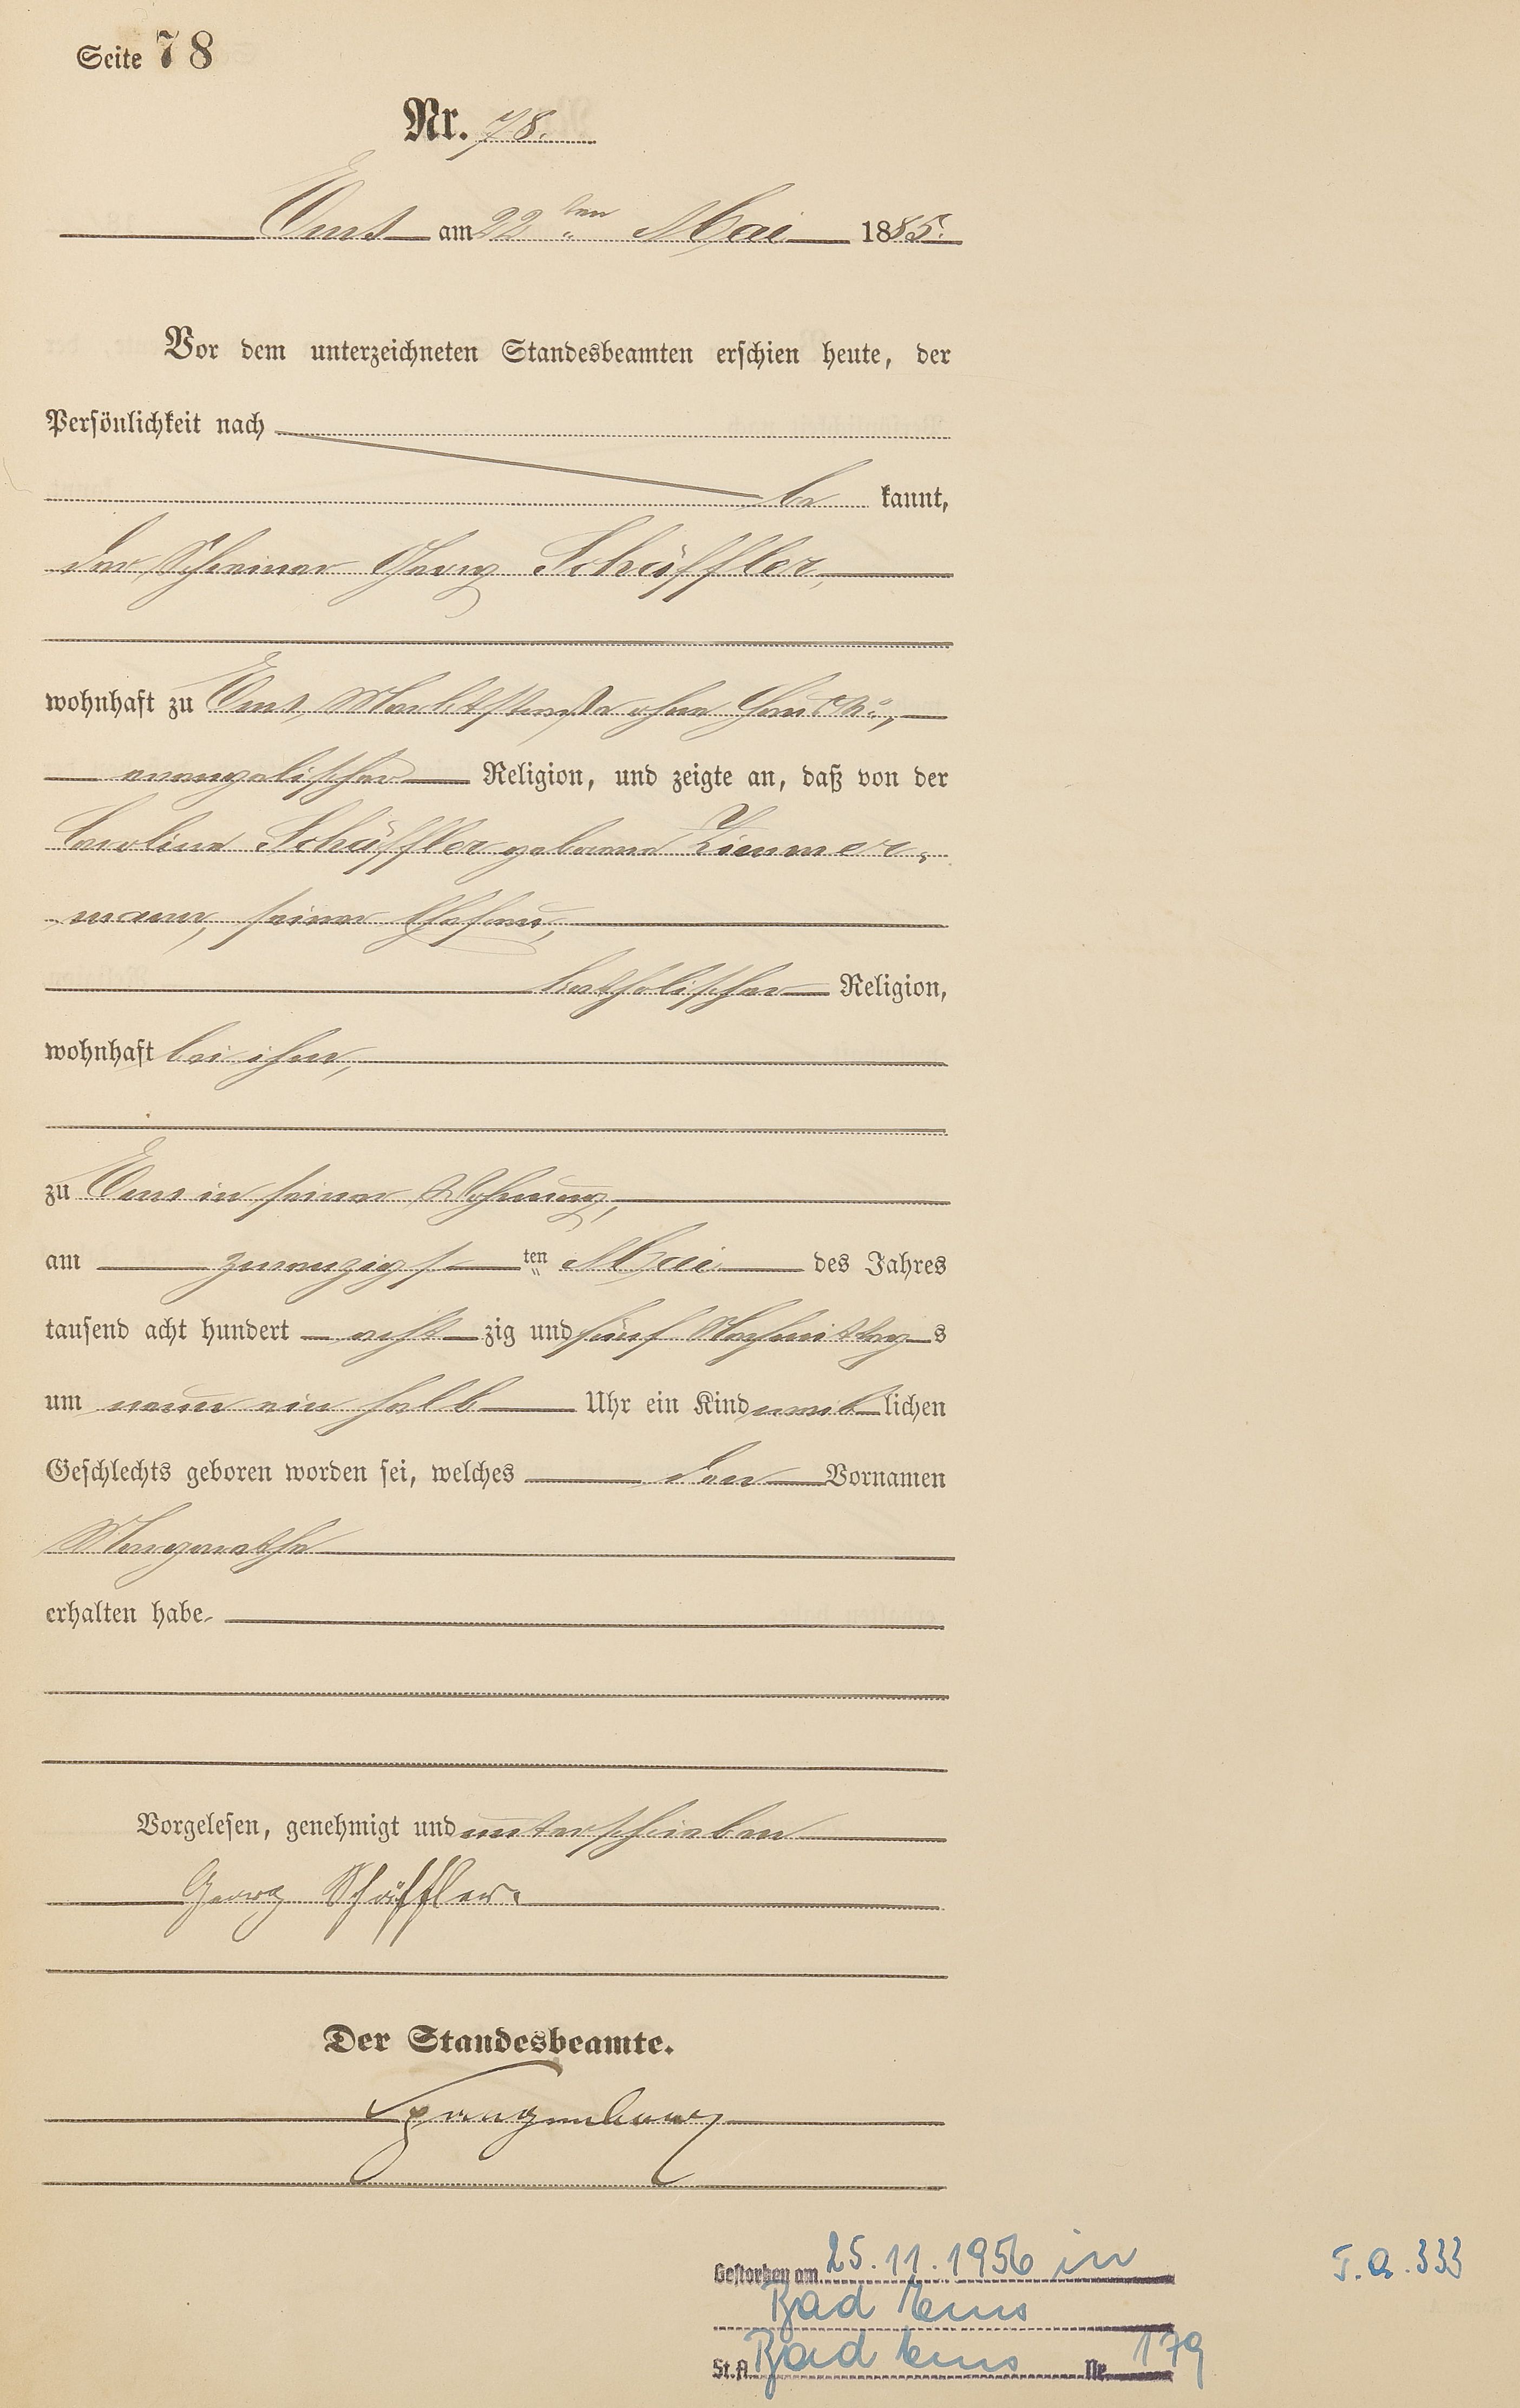 Seite 78
Nr. 78.
Ems am 22ten Mai 1885.
Vor dem unterzeichneten Standesbeamten erschien heute, der
Persönlichkeit nach
be kannt,
der Schreiner Georg Schäffler,
wohnhaft zu Ems, Marktstraße ohne Haus No.,
evangelischer Religion, und zeigte an, daß von der
Caroline Schäffler geborene Zimmer-
mann, seiner Ehefrau,
katholischer Religion,
wohnhaft bei ihm,
zu Ems in seiner Wohnung,
am zwanzigsten Mai des Jahres
tausend acht hundert acht zig und fünf Nachmittags
um neun ein halb Uhr ein Kind weiblichen
Geschlechts geboren worden sei, welches den Vornamen
Margarethe
erhalten habe.
Vorgelesen, genehmigt und unterschrieben
Georg Schäffler.
Der Standesbeamte.
Spangenberg
Gestorben am 25.11.1956 in
Bad Ems
St.A. Bad Ems Nr. 179
T.A. 333